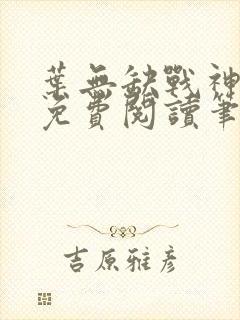 葉無缺戰神
免費閱讀筆
吉原雅彥